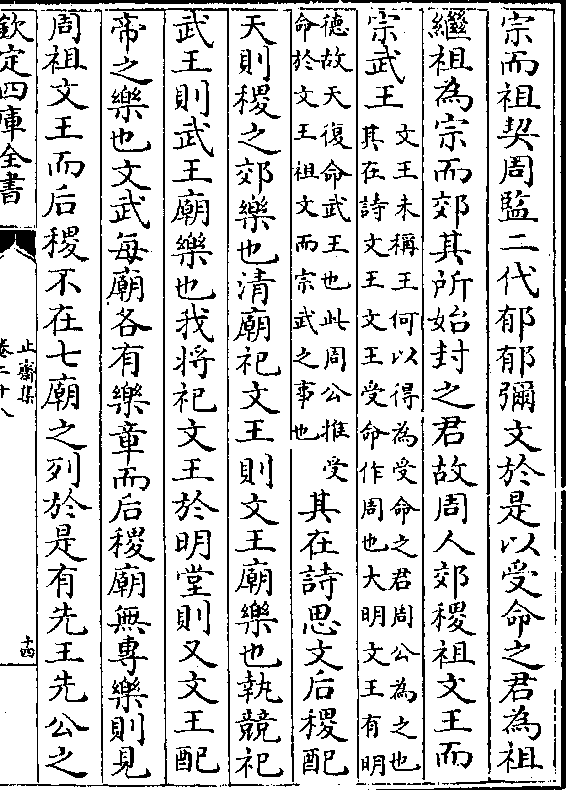 宗而祖契周監二代郁郁彌文於是以受命之君為祖
繼祖為宗而郊其所始封之君故周人郊稷祖文王而
宗武王
文王未稱王何以得為受命之君周公為之也
其在詩文王文王受命作周也大明文王有明
德故天復命武王也此周公推受
命於文王祖文而宗武之事也
其在詩思文后稷配
天則稷之郊樂也清廟祀文王則文王廟樂也執競祀
武王則武王廟樂也我將祀文王於明堂則又文王配
帝之樂也文武每廟各有樂章而后稷廟無專樂則見
周祖文王而后稷不在七廟之列於是有先王先公之
欽定四庫全書
止齋集
卷二十八
十四